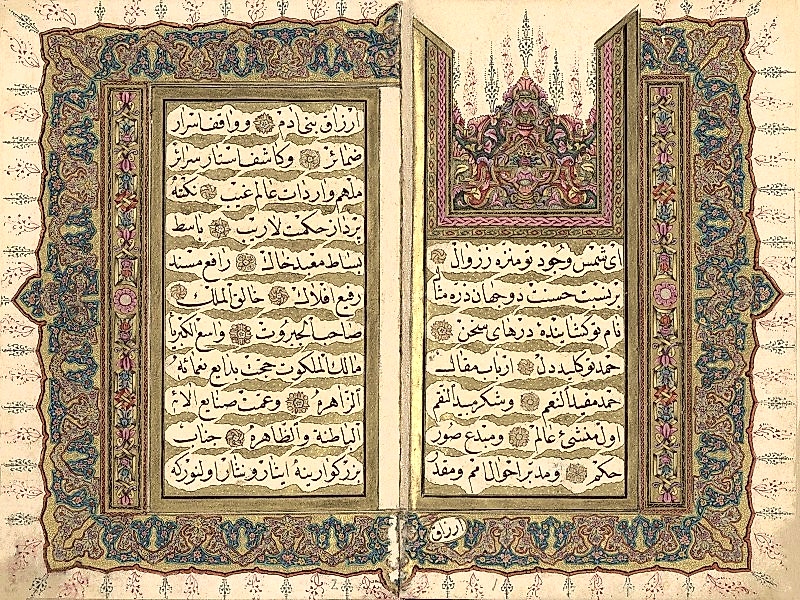 ای شمس وجود تو منزه ز زوال
حسنت دو جهان ذره مثال
نام تو کشاینده درهای سخن
حمد تو کلید دل ارباب مقال
حمد مفید النعم وشکر مبید النقم
اول منشئ عالم ومبدع صور
حکم ومدبر احوال امم ومقدر
ارزاق
ارزاق بنی آدم وواقف اسرار
ضمائر وکاشف استار سرائر
ملهم واردات عالم غیب نکته
پرداز حکمت لاریب باسط
بساط خاک رافع مسند
رفیع افلاک خالق الملک
صاحب الجبروت واسع الکبریا
مالک الملکوت بدایع نعمائه
الزاهره وعمت صنایع الائه
الباطنة والظاهرة جناب
بزرکوارینه ایثار ونثار اولنورکه